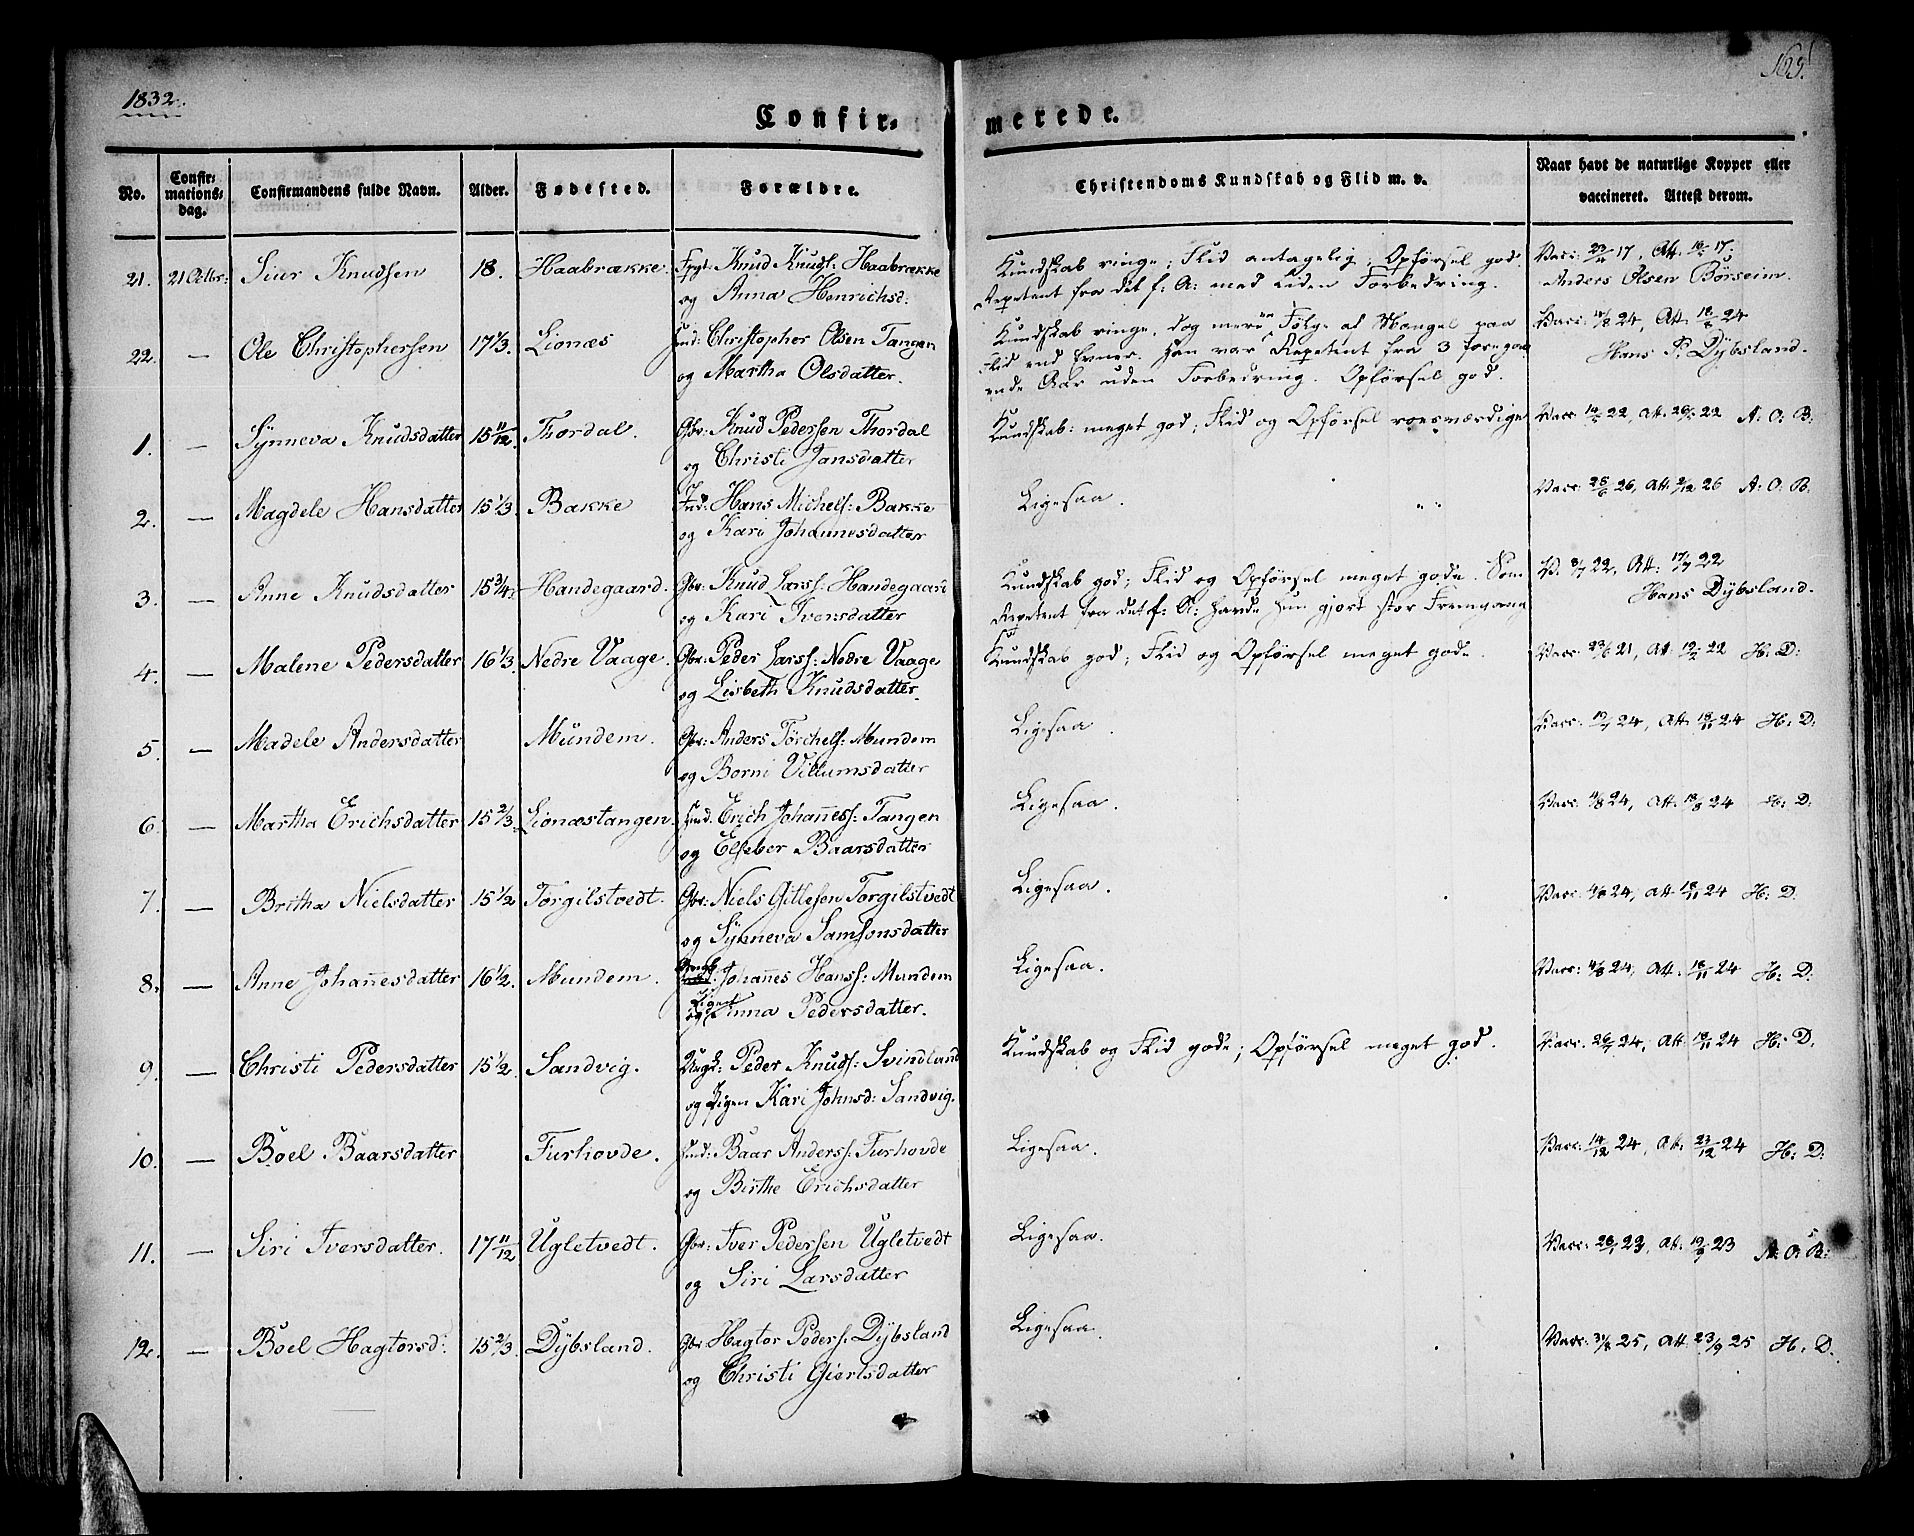 1832.
163.
Confir-
merede.
No.
Confir-
mations-
dag.
Confirmandens fulde Navn.
Alder.
Fødested.
Forældre.
Christendoms Kundskab og Flid m. v.
Naar havt de naturlige Kopper eller
vaccineret. Attest derom.
21. 21 Octbr: Siur Knudsen 18. Haabrække. Knud Knuds: Haabrække
og Anna Henrichsd:
Kundskab ringe; Flid antagelig; Opførsel god.
Repetent fra det f: A: med liden Forbedring.
Vacc: 17, Att. 17.
Anders Olsen Børseim.
22. — Ole Christophersen 17 1/3. Lionæs Ind: Christopher Olsen Tangen
og Martha Olsdatter.
Kundskab ringe, dog mere Følge af Mangel paa
Flid end Evner. Han var Repetent fra 3 foregaa-
ende Aar uden Forbedring. Opførsel god.
Vacc: 24, Att. 18/8 24
Hans P. Dÿbsland.
1. — Sÿnneva Knudsdatter 15 11/12. Tordal. Gbr: Knud Pedersen Thordal
og Christi Jansdatter
Kundskab: meget god; Flid og Opførsel roesværdige
Vacc: 22, Att: 22 A: O: B:
2. — Magdele Hansdatter 15 1/3. Bakke Ind: Hans Michels: Bakke
og Kari Johannesdatter
Ligesaa.
Vacc: 25/6 26, Att: 2/12 26 A: O: B:
3. — Anne Knudsdatter 15 3/4. Handegaard. Gbr: Knud Larss: Handegaard
og Kari Iversdatter
Kundskab god; Flid og Opførsel meget gode. Som
Repetent fra det f: A: havde hun gjort stor Fremgang
V. 22, Att: 22
Hans Dÿbsland.
4. — Malene Pedersdatter 16 1/3. Nedre Vaage. Gbr: Peder Larss: Nedre Vaage
og Lisbeth Knudsdatter.
Kundskab god; Flid og Opførsel meget gode.
Vacc: 21, Att: 22 H: D:
5. — Madele Andersdatter Mundem. Gbr: Anders Törchels: Mundem
og Borni Villumsdatter
Ligesaa
Vacc: 24, Att: 24 H: D:
6. — Martha Erichsdatter 15 2/3. Lionæstangen. Ind: Erich Johañess: Tangen
og Elseber Baarsdatter
Ligesaa.
Vacc: 24, Att: 24 H: D:
7. — Britha Nielsdatter 15 1/2 Torgilstvedt. Gbr: Niels Gitlesen Torgilstvedt
og Sÿnneva Samsonsdatter
Ligesaa.
Vacc: 24, Att 18/11 24 H: D.
8. — Anne Johañesdatter 16 1/2. Mundem. Johañes Hanss: Mundem
Anna Pedersdatter.
Ligesaa.
Vacc: 24, Att: 18/11 24 H: D:
9. — Christi Pedersdatter 15 1/2. Sandvig. Ungk: Peder Knuds: Svindland
og Pigen Kari Johnsd: Sandvig.
Kundskab og Flid gode; Opførsel meget god.
Vacc: 24, Att: 24 H: D.
10. — Boel Baarsdatter Furhovde. Ind: Baar Anderss: Furhovde
og Birthe Erichsdatter
Ligesaa.
Vacc: 14/12 24, Att: 23/12 24 H: D:
11. — Siri Iversdatter. 17 11/12 Ugletvedt. Gbr: Iver Pedersen Ugletvedt
og Siri Larsdatter
Ligesaa.
Vacc: 23, Att: 23 A: O: B:
12. — Boel Hagtorsd: 15 2/3. Dÿbsland. Gbr Hagtor Peders: Dÿbsland
og Christi Giertsdatter
Ligesaa.
Vacc: 25, Att: 23/9 25 H: D.